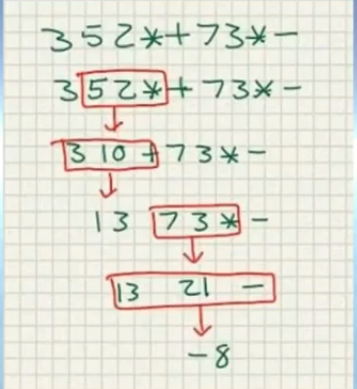 3 5 2 * + 7 3 * -
3 5 2 * + 7 3 * -
3 10 + 7 3 * -
13 7 3 * -
13 21 -
-8